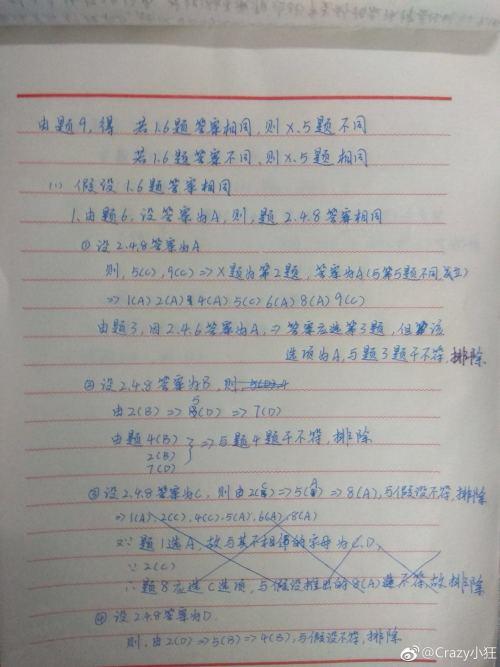 由题9,得 若1.6题答案相同,则X.5题不同
若1.6题答案不同,则X.5题相同
(1) 假设1.6题答案相同
1.由题6,设答案为A,则,题2.4.8答案相同
① 设2.4.8答案为A
则,5(C),9(C)=>X题为第2题,答案为A(与第5题不同,成立)
=>1(A)2(A)4(A)5(C)6(A)8(A)9(C)
由题3,因2.4.6答案为A,=>答案应选第3题,但该
选项为A,与题3题干不符,排除
② 设2.4.8答案为B,则,
由2(B)=>5(D)=>7(D)
由题4(B) }=>与题4题干不符,排除
2(B)
7(D)
③设2.4.8答案为C,则由2(C)=>5(A)=>8(A),与假设不符,排除
=>1(A).2(C).4(C).5(A).6(A).8(A)
又∵题1选A,故与其不相邻的字母为C.D,
∵2(C)
∴题8应选C选项,与假设推出的8(A)选不符,故,排除
④ 设2.4.8答案为D
则,由2(D)=>5(B)=>4(B),与假设不符,排除
@Crazy小狂